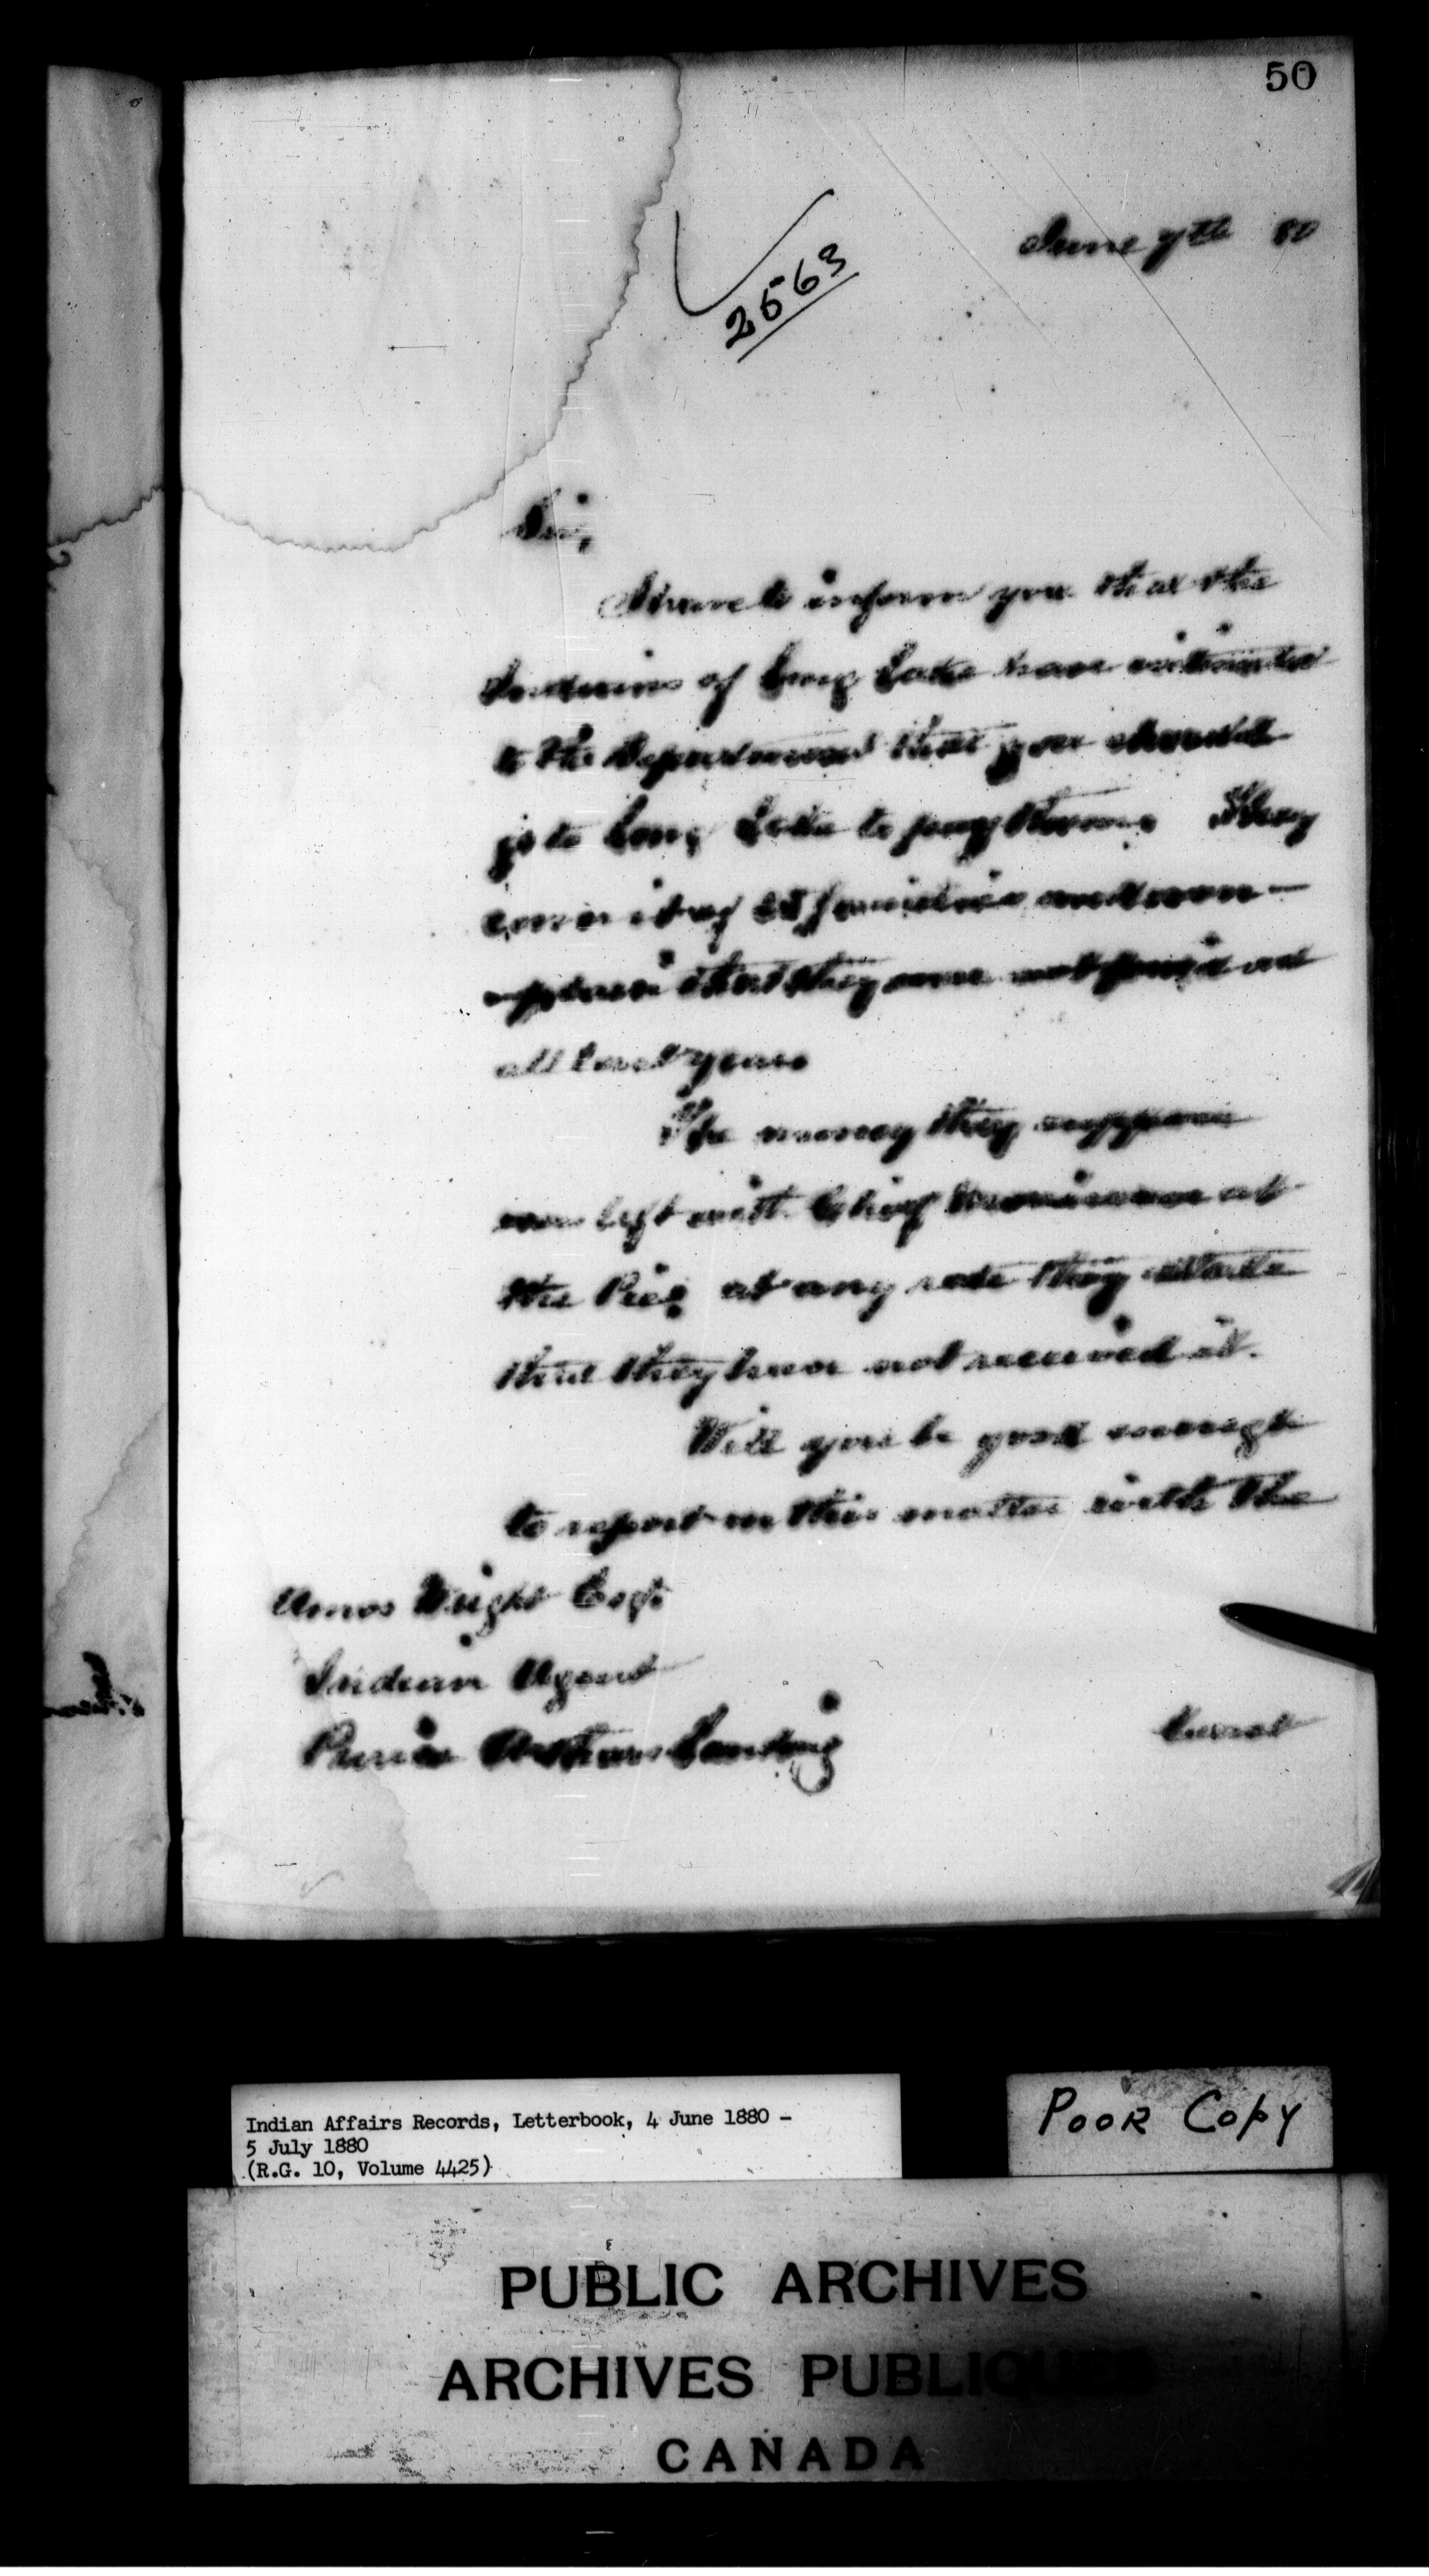 50
June 7th 80
2563
Sir,
I have to inform you that the
Indians of Long Lake have intimated
to the Department that you should
go to Long Lake to pay them. They
consist of families and com-
plain that they were not paid at
all last year
The money they suppose
was left with Chief at
the Pic, at any rate they state
that they have not received it.
Will you be good enough
to report on this matter with the
Amos Wright Esq.
Indian Agent
Prince Arthurs Landing
Indian Affairs Records, Letterbook, 4 June 1880 -
5 July 1880
(R.G. 10, Volume 4425)
POOR COPY
PUBLIC ARCHIVES
ARCHIVES PUBLIQUES
CANADA